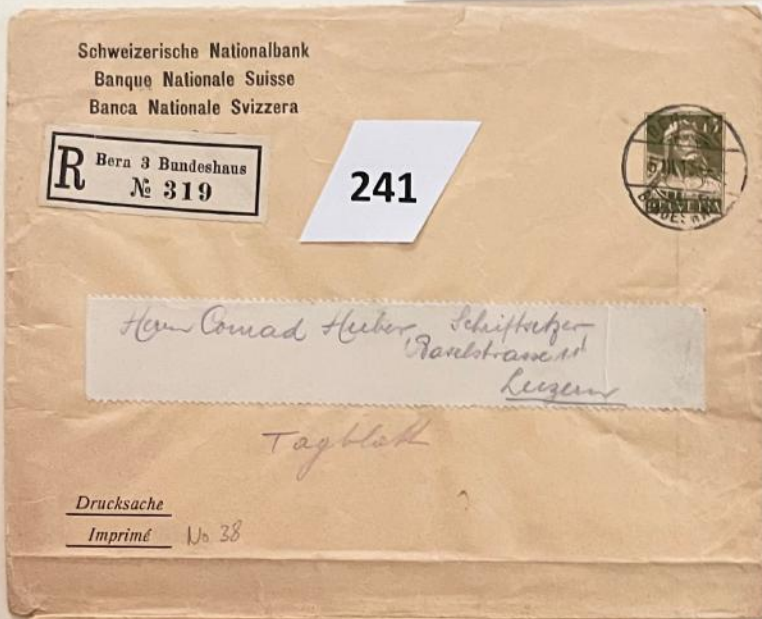 Schweizerische Nationalbank
Banque Nationale Suisse
Banca Nationale Svizzera
R Bern 3 Bundeshaus
№ 319
241
Herrn Conrad Huber Schriftsetzer
Baselstrasse 11
Luzern
Tagblatt
Drucksache
Imprimé No 38